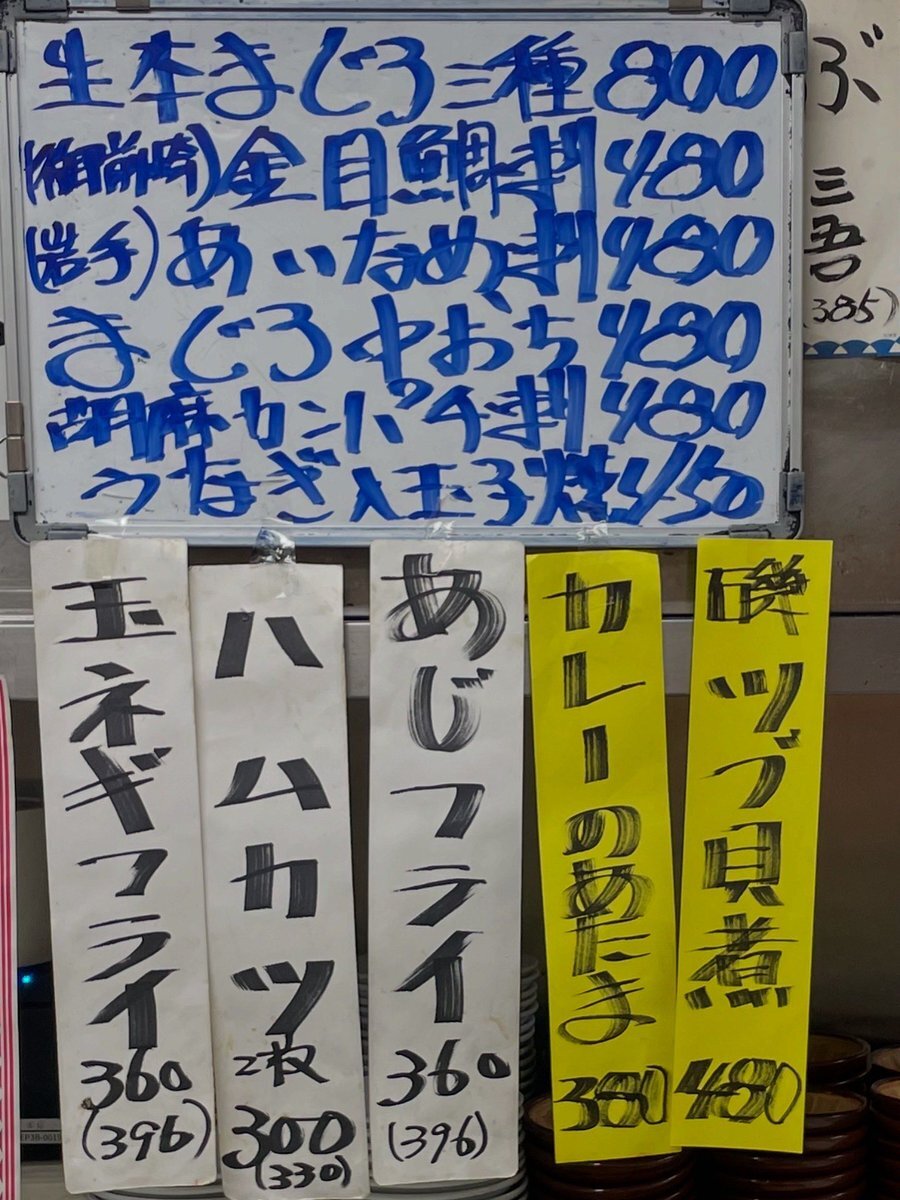 生本まぐろ三種800
(御前崎)金目鯛刺480
(岩手)あいなめ刺480
まぐろ中おち480
胡麻カンパチ刺480
うなぎ入玉子焼450
玉ネギフライ
360
(396)
ハムカツ
2枚
300
(330)
あじフライ
360
(396)
カレーのあたま
380
磯ツブ貝煮
480
ぶ
三
吾
(385)